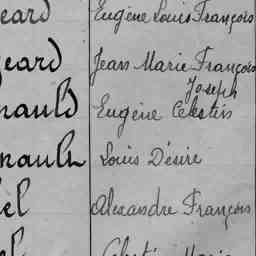 eard Eugène Louis François
eard Jean Marie François
Joseph
nauld Eugène Célestin
nault Louis Désiré
el Alexandre François
el Célestin Marie